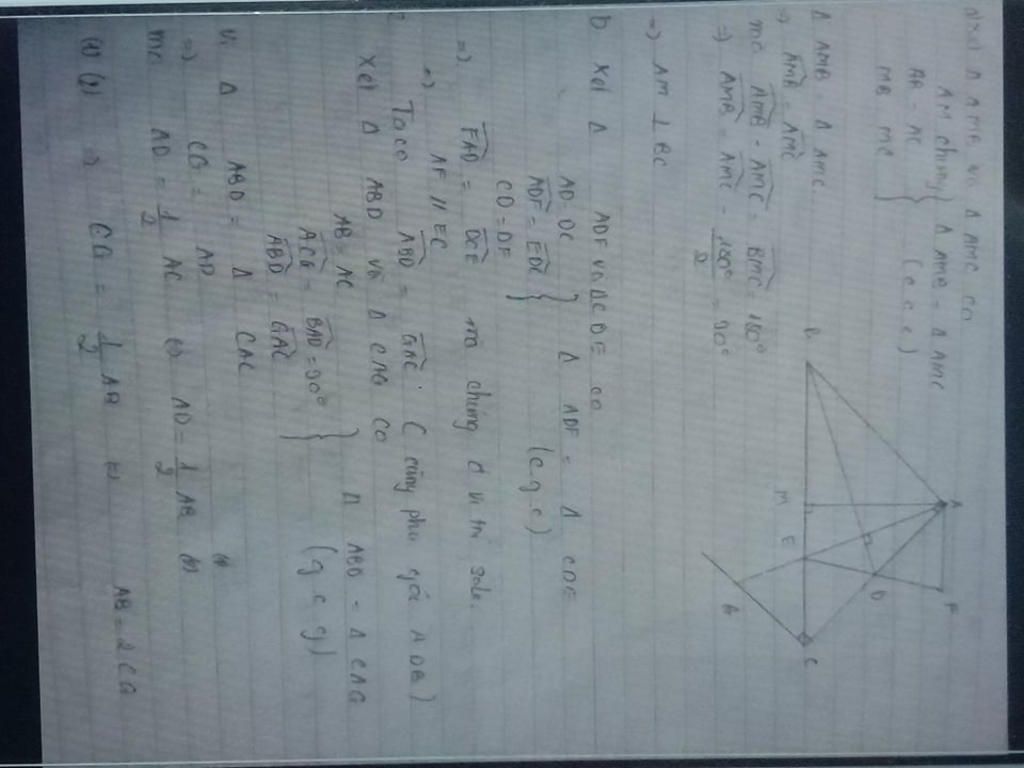 a) Xét Δ AMB và Δ AMC có
AM chung
AB = AC } Δ AMB = Δ AMC
MB MC } (c c c)
Δ AMB = Δ AMC
=> AMB = AMC
mà AMB - AMC = BMC = 180°
=> AMB = AMC - 180°/2 = 90°
=> AM ⊥ BC
b Xét Δ ADF và ΔCDE có
AD = DC } Δ ADF = Δ CDE
ADF = EDC } (c g c)
CD = DF
=> FAD = DCE mà chúng ở vị trí sole.
=> AF // EC
Ta có ABD = GAC. ( cùng phụ góc ADB)
Xét Δ ABD và Δ CAG có
AB = AC } Δ ABD = Δ CAG
ACG = BAD = 90° } (g c g)
ABD = GAC
Vì Δ ABD = Δ CAC
=> CG = AD
mà AD = 1/2 AC => AD = 1/2 AB
(1) (2) => CG = 1/2 AB => AB = 2 CG
A
F
D
B
M
E
C
G